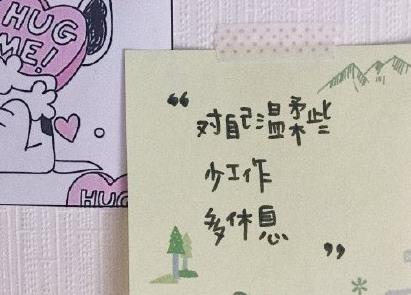 HUG
ME!
HUG
“对自己温柔些
少工作
多休息”